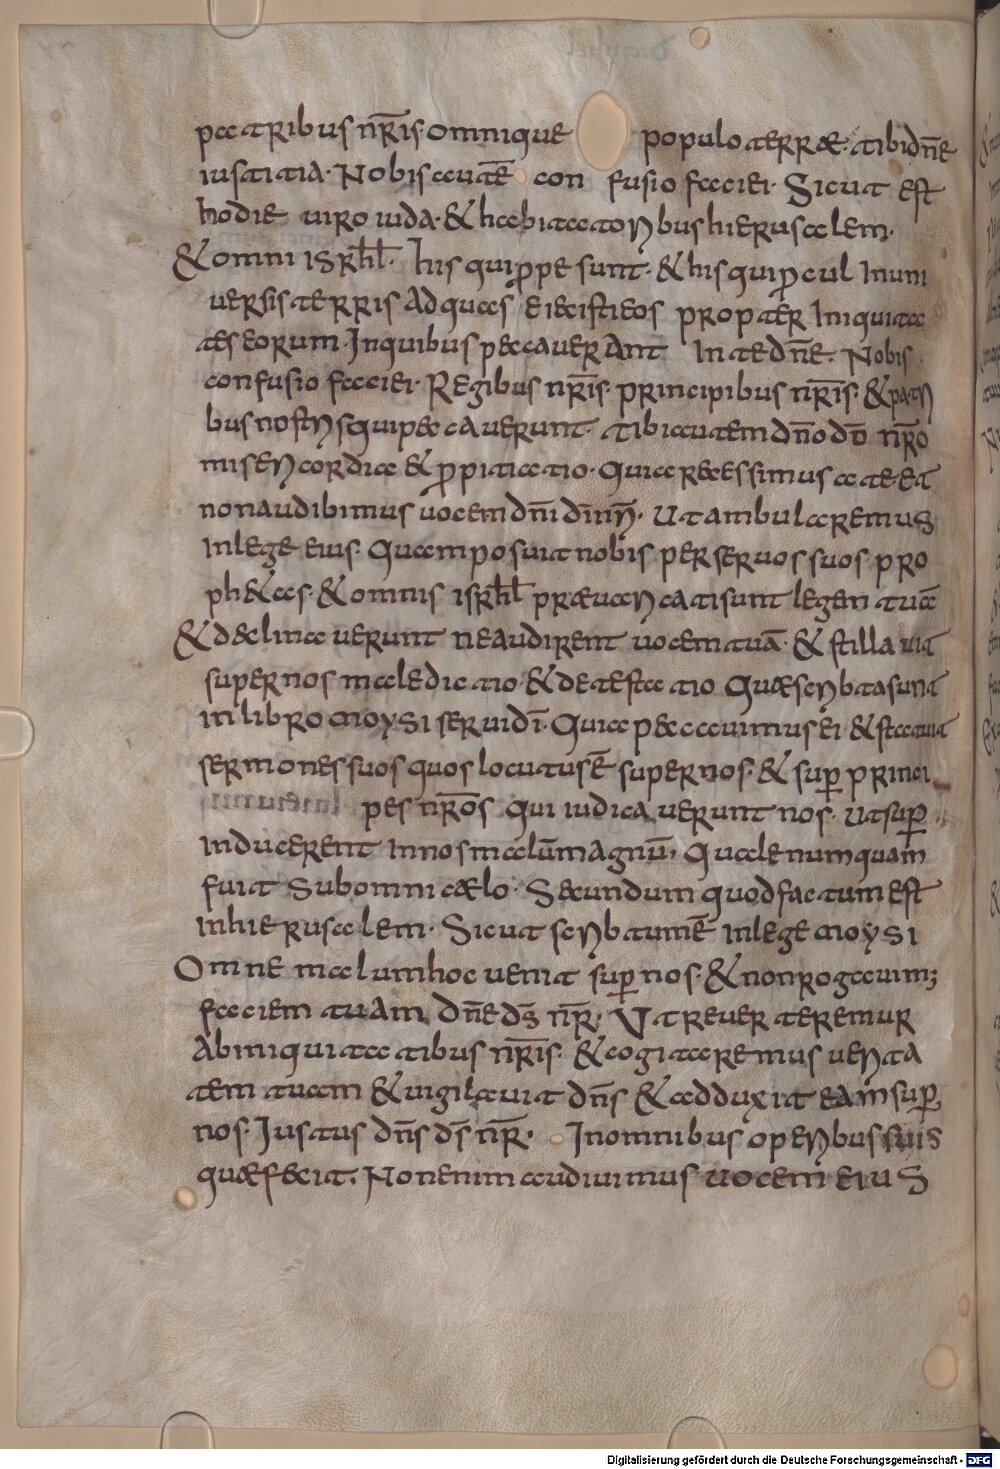 patribus nr̄is· omnique populo terræ· tibi dn̄e
iustitia· Nobis autē con fusio faciei· Sicut est
hodie uiro iuda· & habitatoribus hierusalem·
& omni isrl̄· his qui prope sunt· & his qui procul In uni
uersis terris ad quas eiecisti eos propter Iniquita
tes eorum· In quibus peccauerant In te dn̄e· Nobis
confusio faciei· Regibus nr̄is· principibus nr̄is· & patri
bus nostris qui peccauerunt· tibi autem dn̄o dō nr̄o
misericordia & propitiatio· quia recessimus a te· et
non audibimus uocem dn̄i dī nr̄i· Ut ambularemus
In lege eius· Quam posuit nobis per seruos suos· pro
ph&as· & omnis isrhl̄ præuaricati sunt legem tuā
& declinauerunt ne audirent uocem tuā· & stillauit
super nos maledictio· & detestatio Quæ scribta sunt
In libro moysi serui dī· Quia peccauimus ei· & statuit
sermones suos quos locutus ē super nos· & sup̄ princi
pes nr̄os qui iudicauerunt nos· Ut sup̄
inducerent In nos malū magnū, Quale numquam
fuit sub omni cælo· Secundum quod factum est
In hierusalem· Sicut scribtum ē In lege moysi
Omne malum hoc uenit sup̄ nos· & non rogauim;
faciem tuam dn̄e ds̄ nr̄· Ut reuerteremur
Ab iniquitatibus nr̄is· & cogitaremus uerita
tem tuam & uigilauit dn̄s & adduxit eam sup̄
nos· Iustus dn̄s ds̄ nr̄· In omnibus operibus suis
quæ fecit· Non enim audiuimus uocem eius
Digitalisierung gefördert durch die Deutsche Forschungsgemeinschaft - DFG